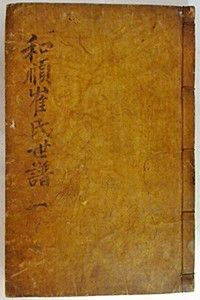 和順崔氏世譜 一